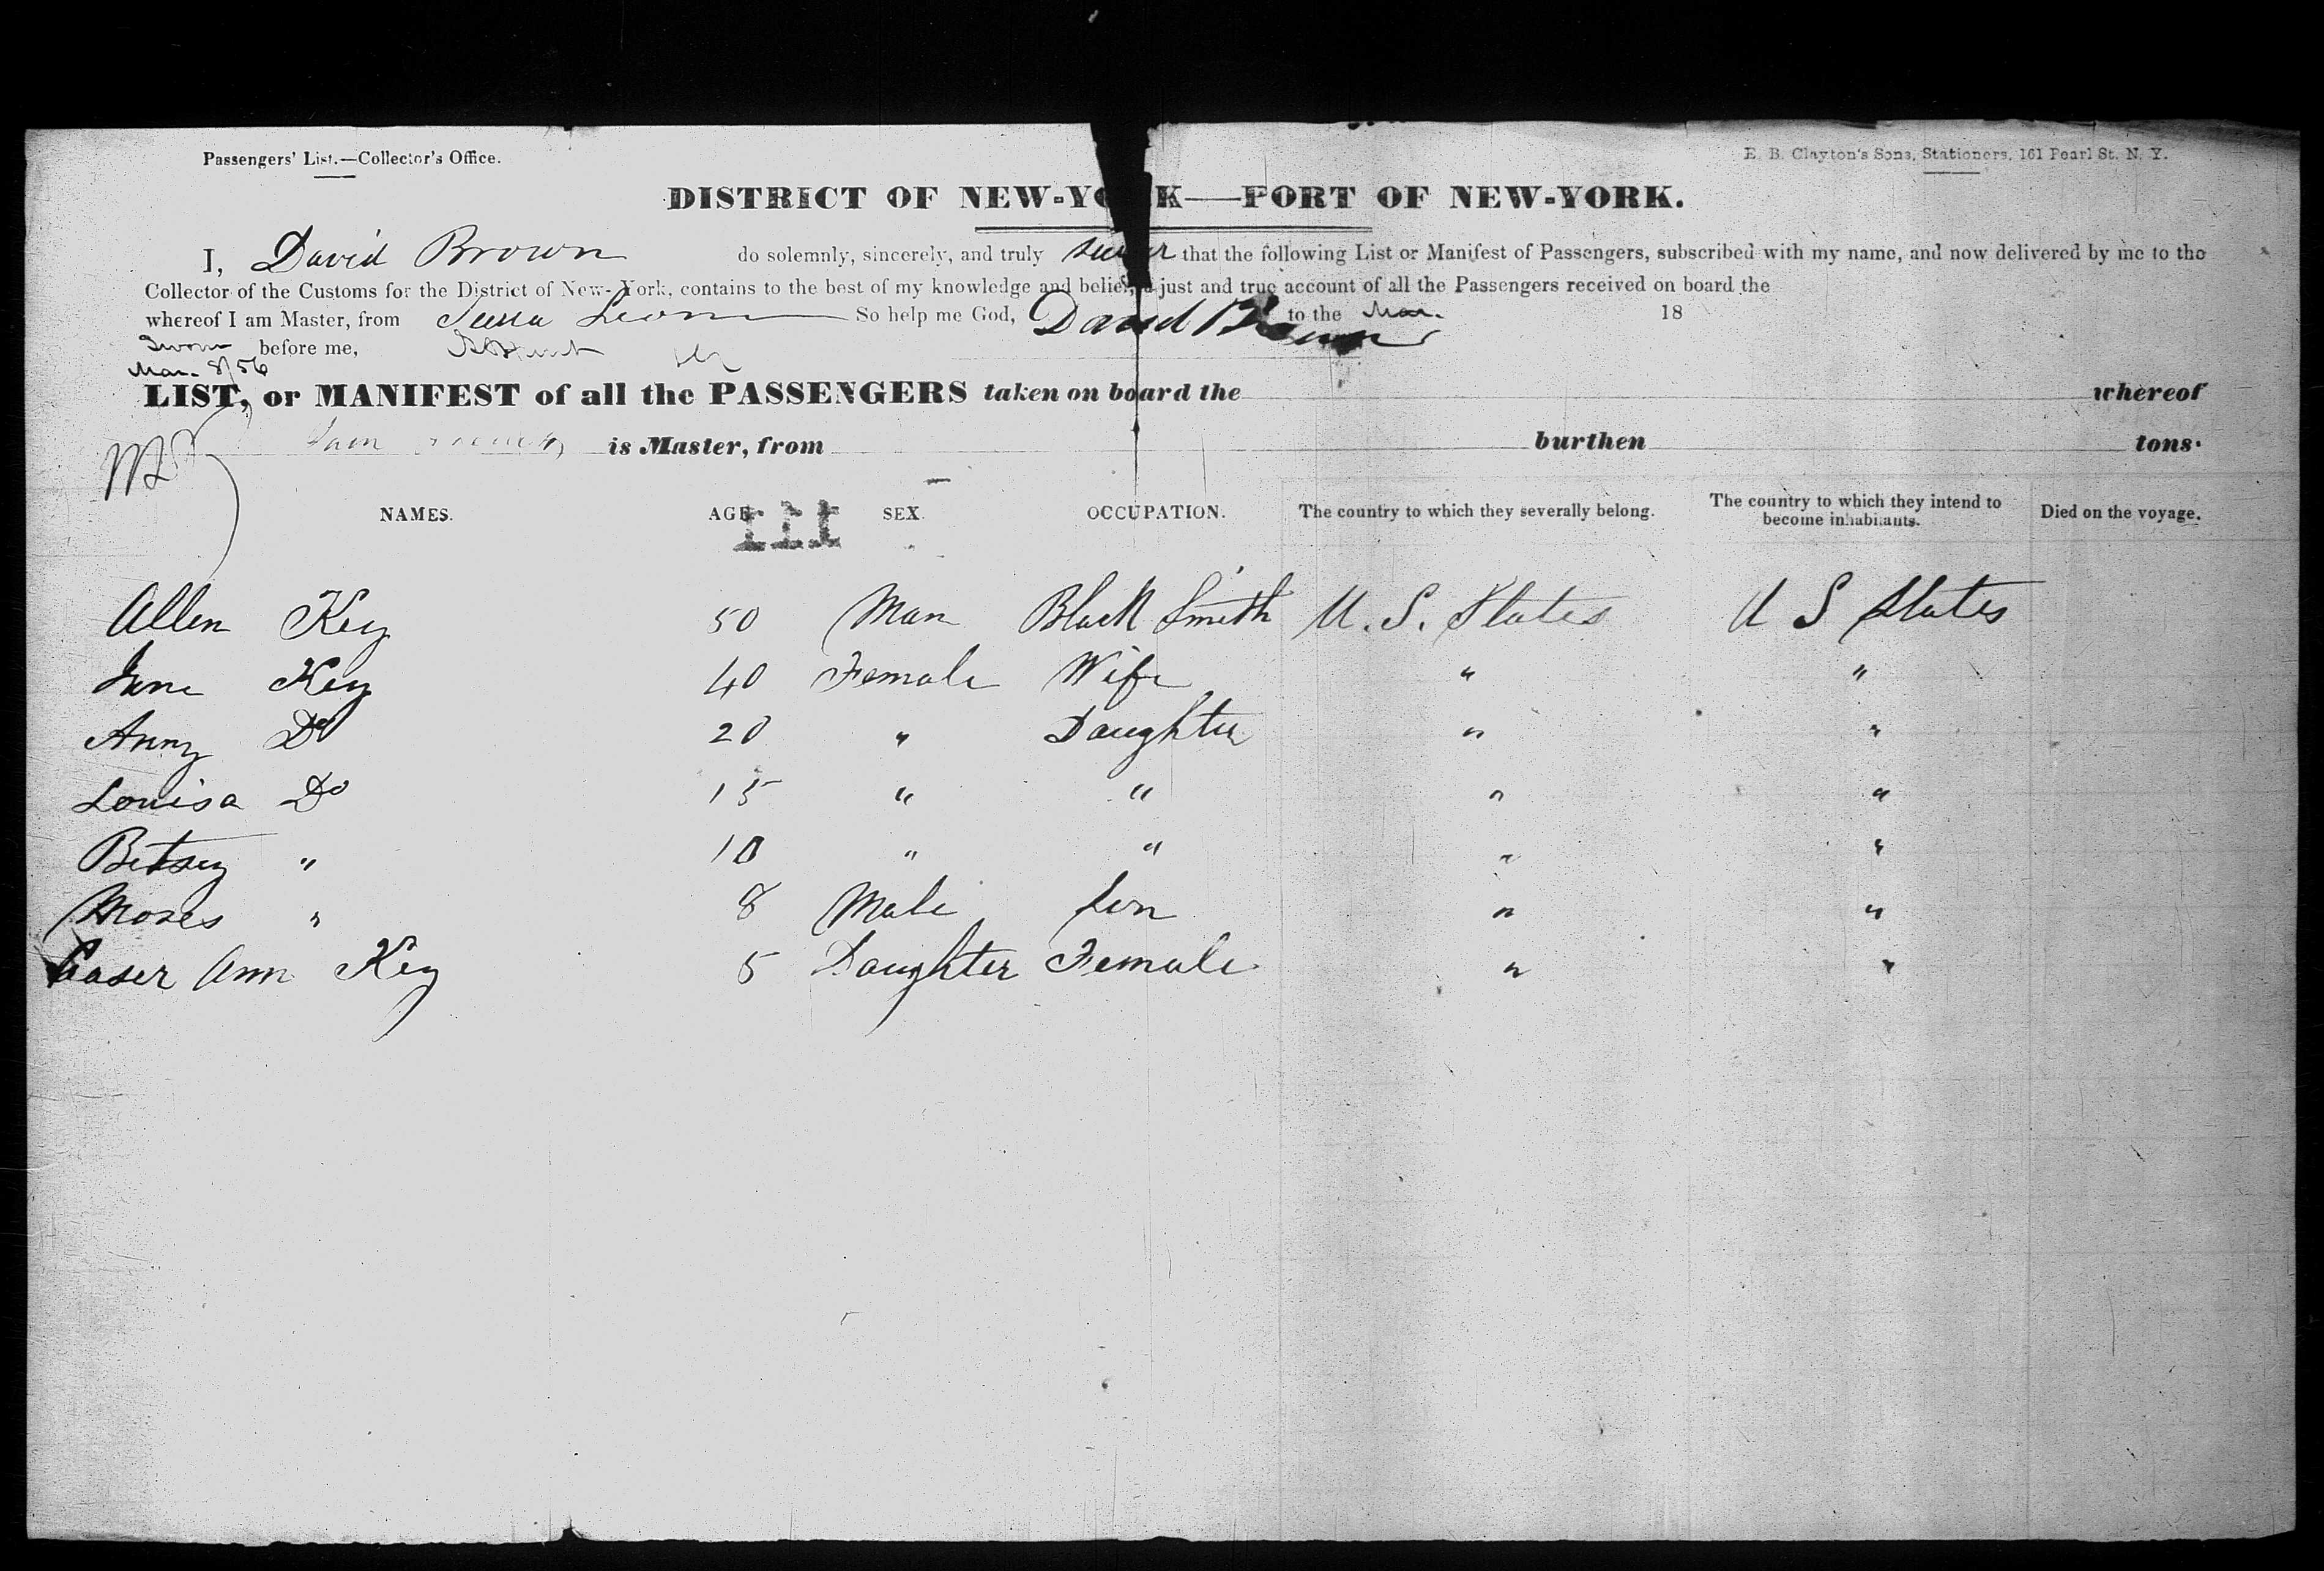 Passengers' List.—Collector's Office.
E. B. Clayton's Sons, Stationers, 161 Pearl St. N. Y.
DISTRICT OF NEW-YORK—PORT OF NEW-YORK.
I, David Brown do solemnly, sincerely, and truly swear that the following List or Manifest of Passengers, subscribed with my name, and now delivered by me to the
Collector of the Customs for the District of New-York, contains to the best of my knowledge and belief, a just and true account of all the Passengers received on board the
whereof I am Master, from Seera Leone So help me God, David Brown to the Mar. 18
Sworn before me,
Mar. 8/56
LIST, or MANIFEST of all the PASSENGERS taken on board the whereof
is Master, from burthen tons.
NAMES. AGE SEX. OCCUPATION. The country to which they severally belong. The country to which they intend to become inhabitants. Died on the voyage.
111
Allen Key 50 Man Black Smith U. S. States U S States
Jane Key 40 Female Wife " "
Anny Do 20 " Daughter " "
Louisa Do 15 " " " "
Betsey " 10 " " " "
Moses " 8 Male Son " "
Caser Ann Key 5 Daughter Female " "